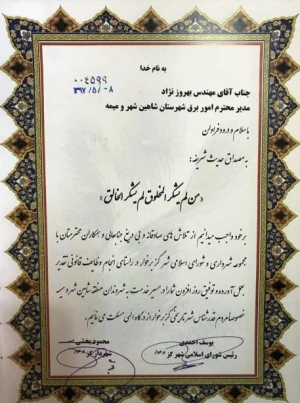 به نام خدا
۰۰۴۵۹۹
۳۹۷/۵/-۸
جناب آقای مهندس بهروز نژاد
مدیر محترم امور برق شهرستان شاهین شهر و میمه
با سلام و درود فراوان
به مصداق حدیث شریفه:
«من لم یشکر المخلوق لم یشکر الخالق»
برخود واجب میدانیم از تلاش های صادقانه و بی دریغ جنابعالی و همکاران محترمتان با
مجموعه شهرداری و شورای اسلامی شهر گز برخوار در راستای انجام وظایف قانونی تقدیر
بعمل آورده و توفیق روز افزون شما را در مسیر خدمت به شهروندان منطقه شاهین شهر و میمه
خصوصا مردم قدرشناس شهر تاریخی گز برخوار از درگاه الهی مسئلت می نمائیم.
یوسف احمدی
رئیس شورای اسلامی شهر گز
محمود بخشی
شهردار گز